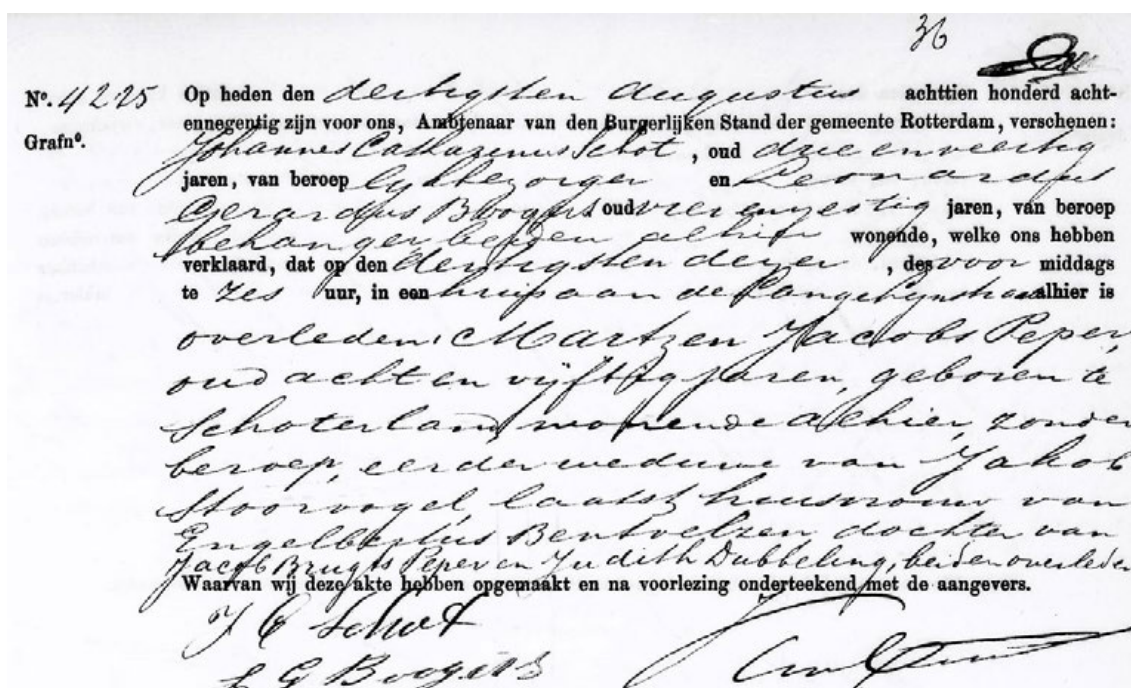 36
Nº. 4225 Op heden den dertigsten Augustus achttien honderd acht-
ennegentig zijn voor ons, Ambtenaar van den Burgerlijken Stand der gemeente Rotterdam, verschenen:
Grafnº.
Johannes Catharinus Schot, oud drie en veertig
jaren, van beroep lijkbezorger en Leonardus
Gerardus Boogers oud vier en zestig jaren, van beroep
behanger beiden alhier wonende, welke ons hebben
verklaard, dat op den dertigsten dezer, des voor middags
te zes uur, in een huis aan de Lange Lijnstraat alhier is
overleden: Martzen Jacobs Peper,
oud acht en vijftig jaren, geboren te
Schoterland, wonende alhier, zonder
beroep, eerder weduwe van Jakob
Stoorvogel, laatst huisvrouw van
Engelbertus Bentvelzen, dochter van
Jacob Brugts Peper en Judith Dubbeling, beiden overleden
Waarvan wij deze akte hebben opgemaakt en na voorlezing onderteekend met de aangevers.
J C Schot
L G Boogers